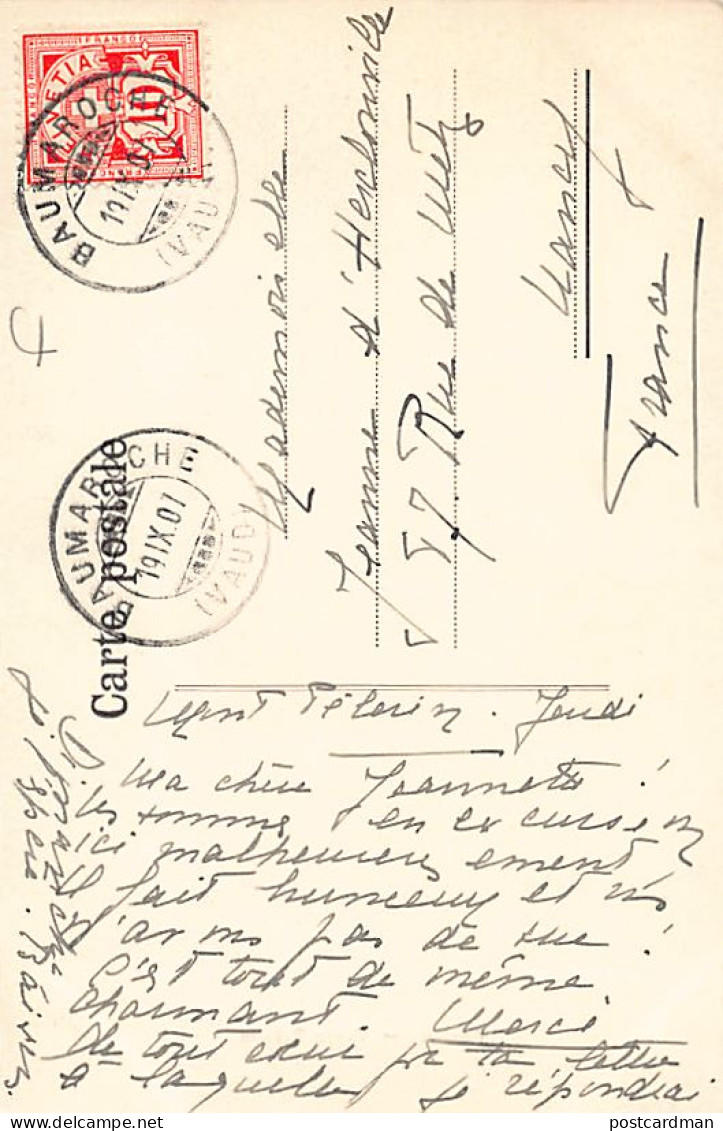 HELVETIA
FRANCO
10
BAUMAROCHE
19.IX.07
(VAUD)
Mademoiselle
Jeanne d'Herlouville
57. Rue de Metz
Nancy
France
Carte postale
BAUMAROCHE
19.IX.07
(VAUD)
Mont Pèlerin. Jeudi
Ma chère Jeannette!
Ns sommes en excursion
ici malheureusement
Il fait humeux et ns
n'avons pas de vue!
C'est tout de même
charmant. Merci
de tout cœur pr ta lettre
à laquelle je répondrai
Dimanche
je l'espère. Baisers.
postcardman